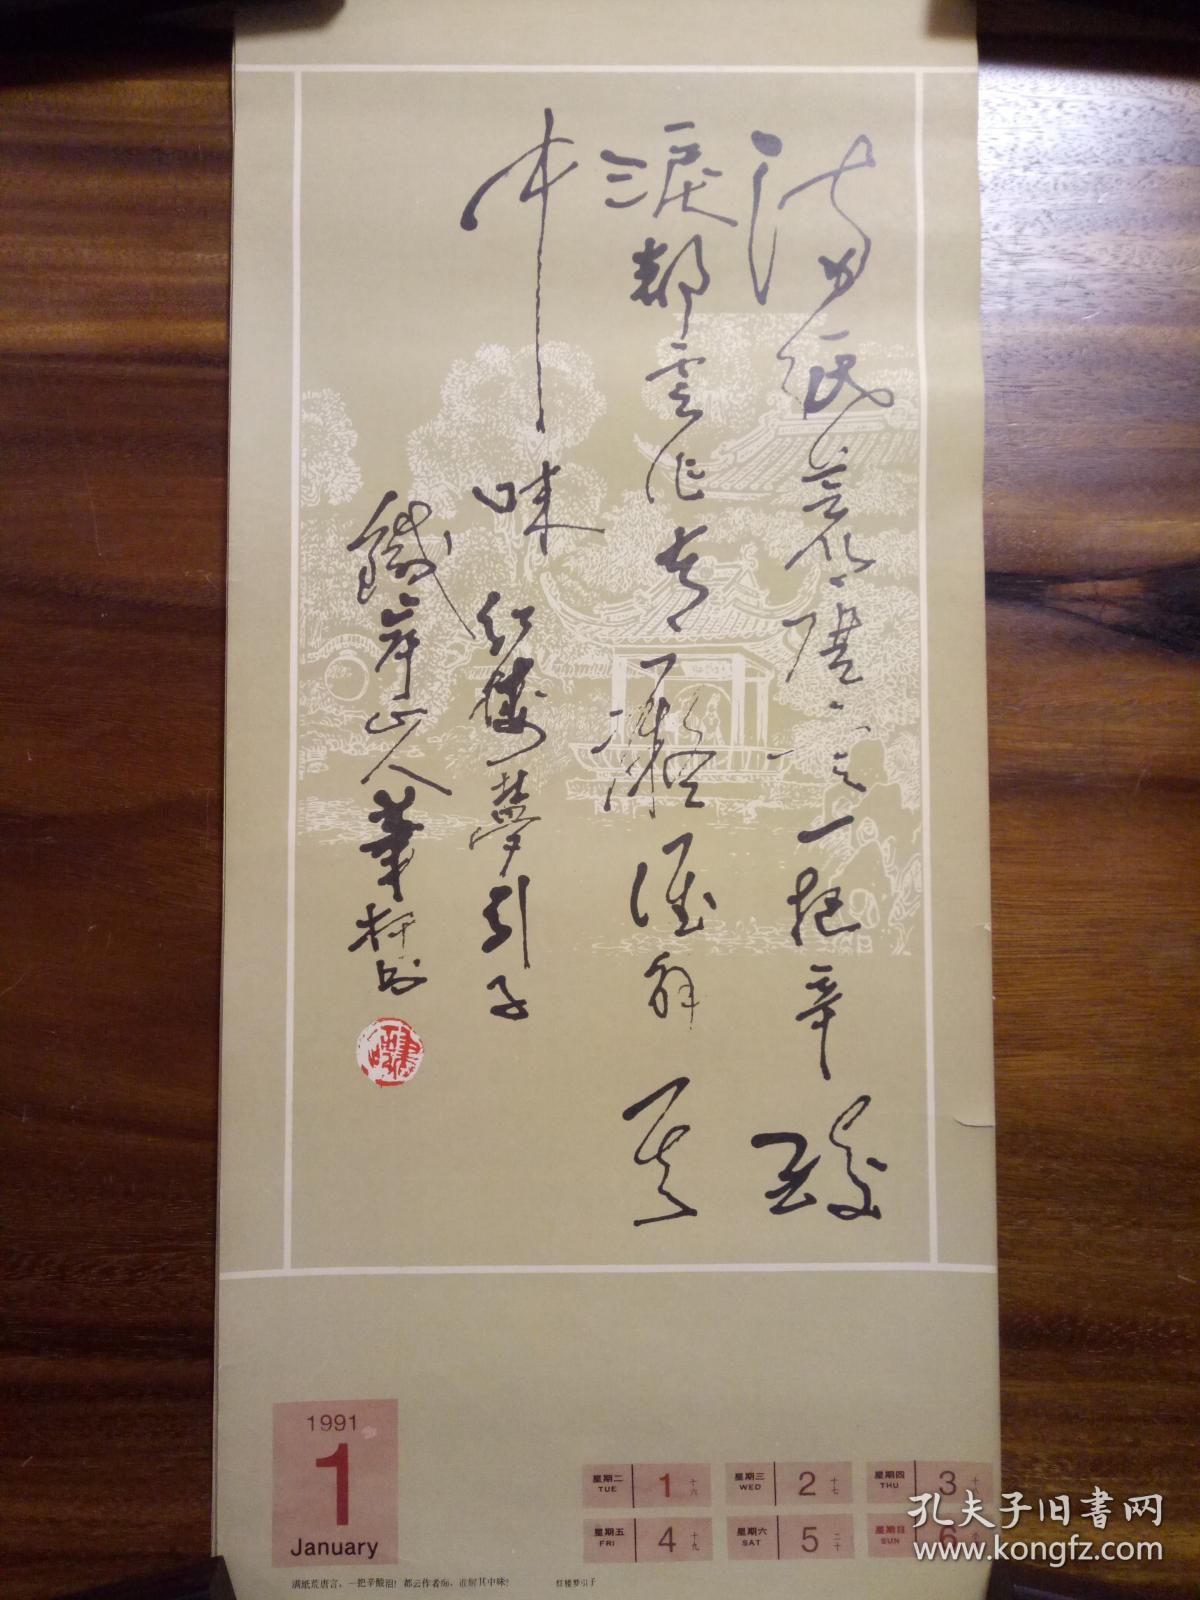 滿紙荒唐言一把辛酸
淚都雲作者癡誰解其
中味 紅樓夢引子
鐵岸山人肇村書
1991
1
January
星期二 TUE 1 十六
星期三 WED 2 十七
星期四 THU 3 十
星期五 FRI 4 十九
星期六 SAT 5 二十
星期日 SUN 6
满纸荒唐言，一把辛酸泪！都云作者痴，谁解其中味？ 红楼梦引子
孔夫子旧书网
www.kongfz.com